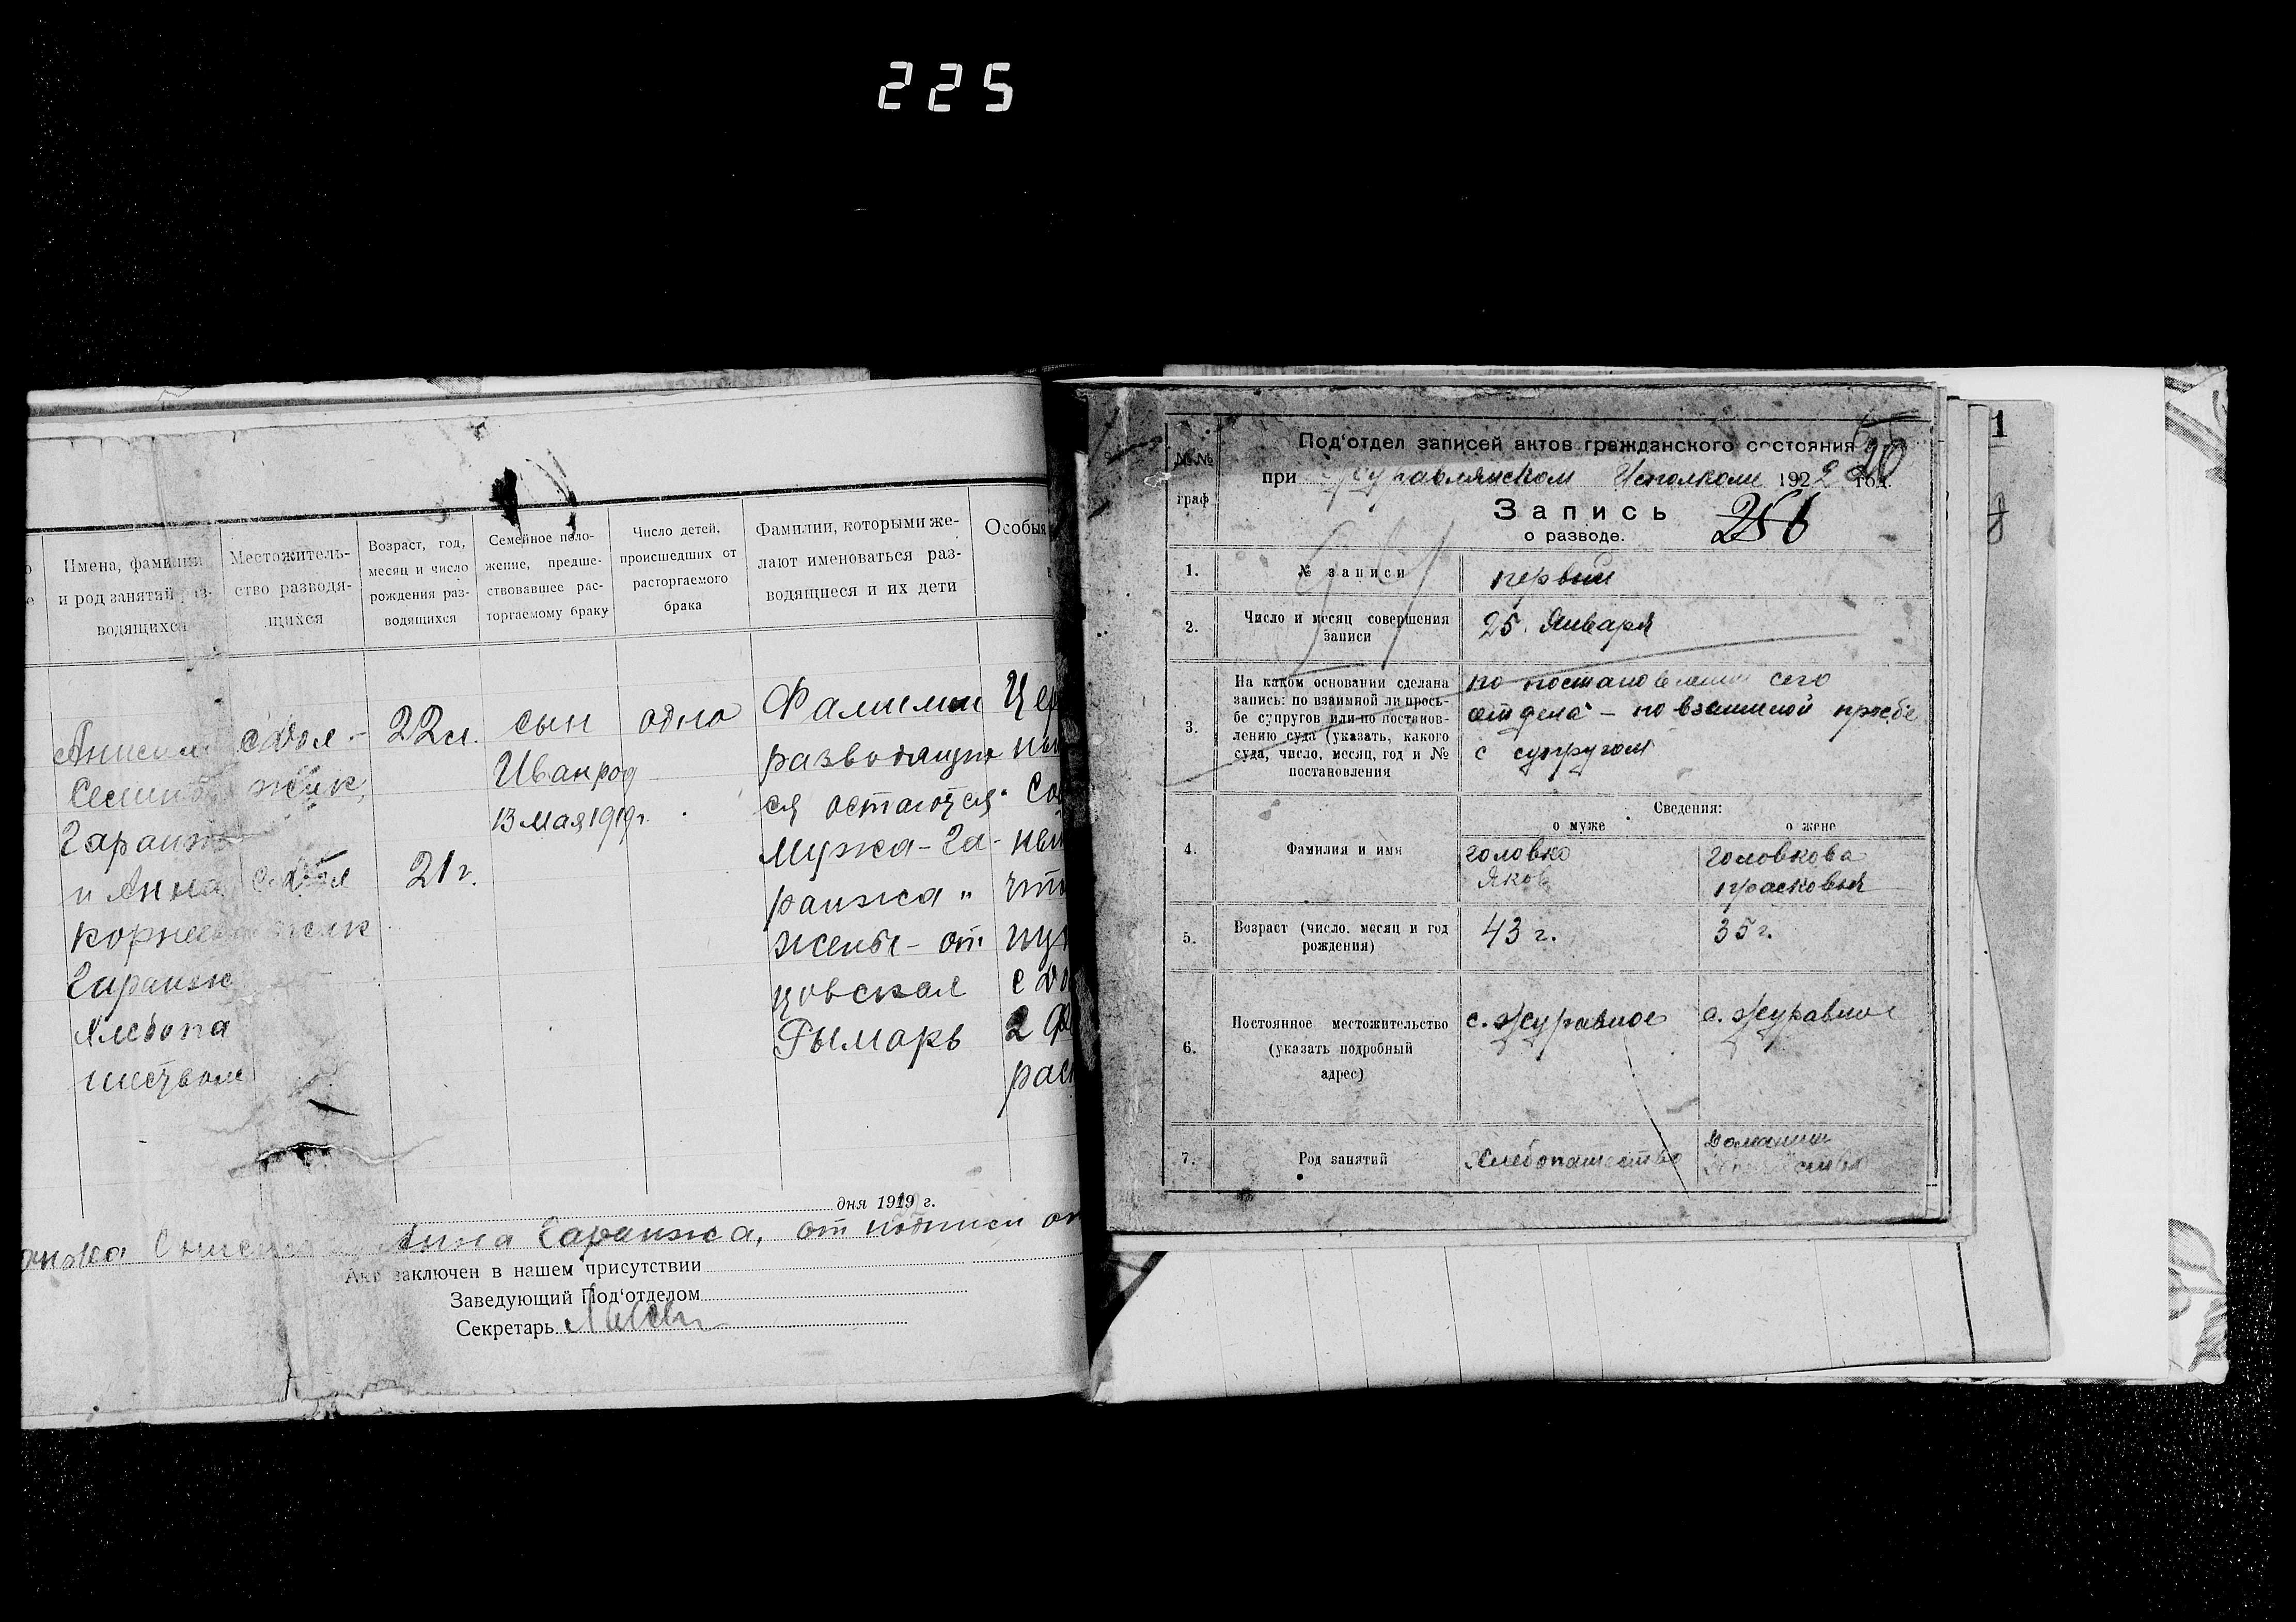 225
Имена, фамилии
и род занятий раз-
водящихся
Местожитель-
ство разводя-
щихся
Возраст, год,
месяц и число
рождения раз-
водящихся
Семейное поло-
жение, предше-
ствовавшее рас-
торгаемому браку
Число детей,
происшедших от
расторгаемого
брака
Фамилии, которыми же-
лают именоваться раз-
водящиеся и их дети
Особыя
Анисим
Гаранжа
и Анна
Корнеев
Гаранж
хлебопа
шеством
с Дол-
жик
с Дол
жик
22 л.
21 г.
сын
Иван род
13 мая 1919 г.
одно
Фамилии
разводящие
ся остаются
мужа - Га-
ранжа "
жены - от
цовская
Рымарь
Цер
ный
Со
ный
что
с До
2 Ф
рас
дня 1919 г.
Анна Гаранжа, от подписи от
Акт заключен в нашем присутствии
Заведующий Под‘отделом
Секретарь
№№
граф
Под‘отдел записей актов гражданского состояния
при Журавлянском Исполкоме 1922 год.
Запись
о разводе.
256
1.
№ записи
первый
2.
Число и месяц совершения
записи
25 Января
3.
На каком основании сделана
запись: по взаимной ли прось-
бе супругов или по постанов-
лению суда (указать, какого
суда, число, месяц, год и №
постановления
по постановлении сего
отдела - по взаимной прозбе
с супругом
Сведения:
о муже
о жене
4.
Фамилия и имя
Головко
Яков
Головкова
Прасковья
5.
Возраст (число, месяц и год
рождения)
43 г.
35 г.
6.
Постоянное местожительство
(указать подробный
адрес)
с. Журавное
с. Журавное
7.
Род занятий
Хлебопашество
Домашн
1
8